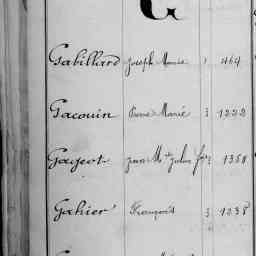 G
Gabillard Joseph Marie 464
Gacouin Pierre Marie 1222
Gageot Jean M. Julien 1350
Gahier François 1238